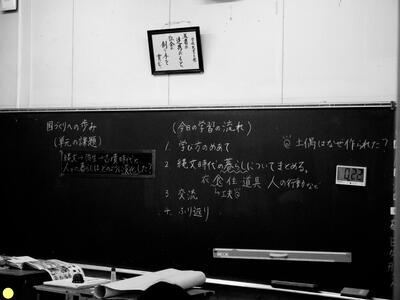 国づくりへの歩み
(単元の課題)
縄文→弥生→古墳時代と
人々の暮らしはどのように変化した?
(今日の学習の流れ)
1. 学び方のめあて
2. 縄文時代の暮らしについてまとめる。
衣食住 道具 人の行動など
3. 交流
4. ふり返り
土偶はなぜ作られた?